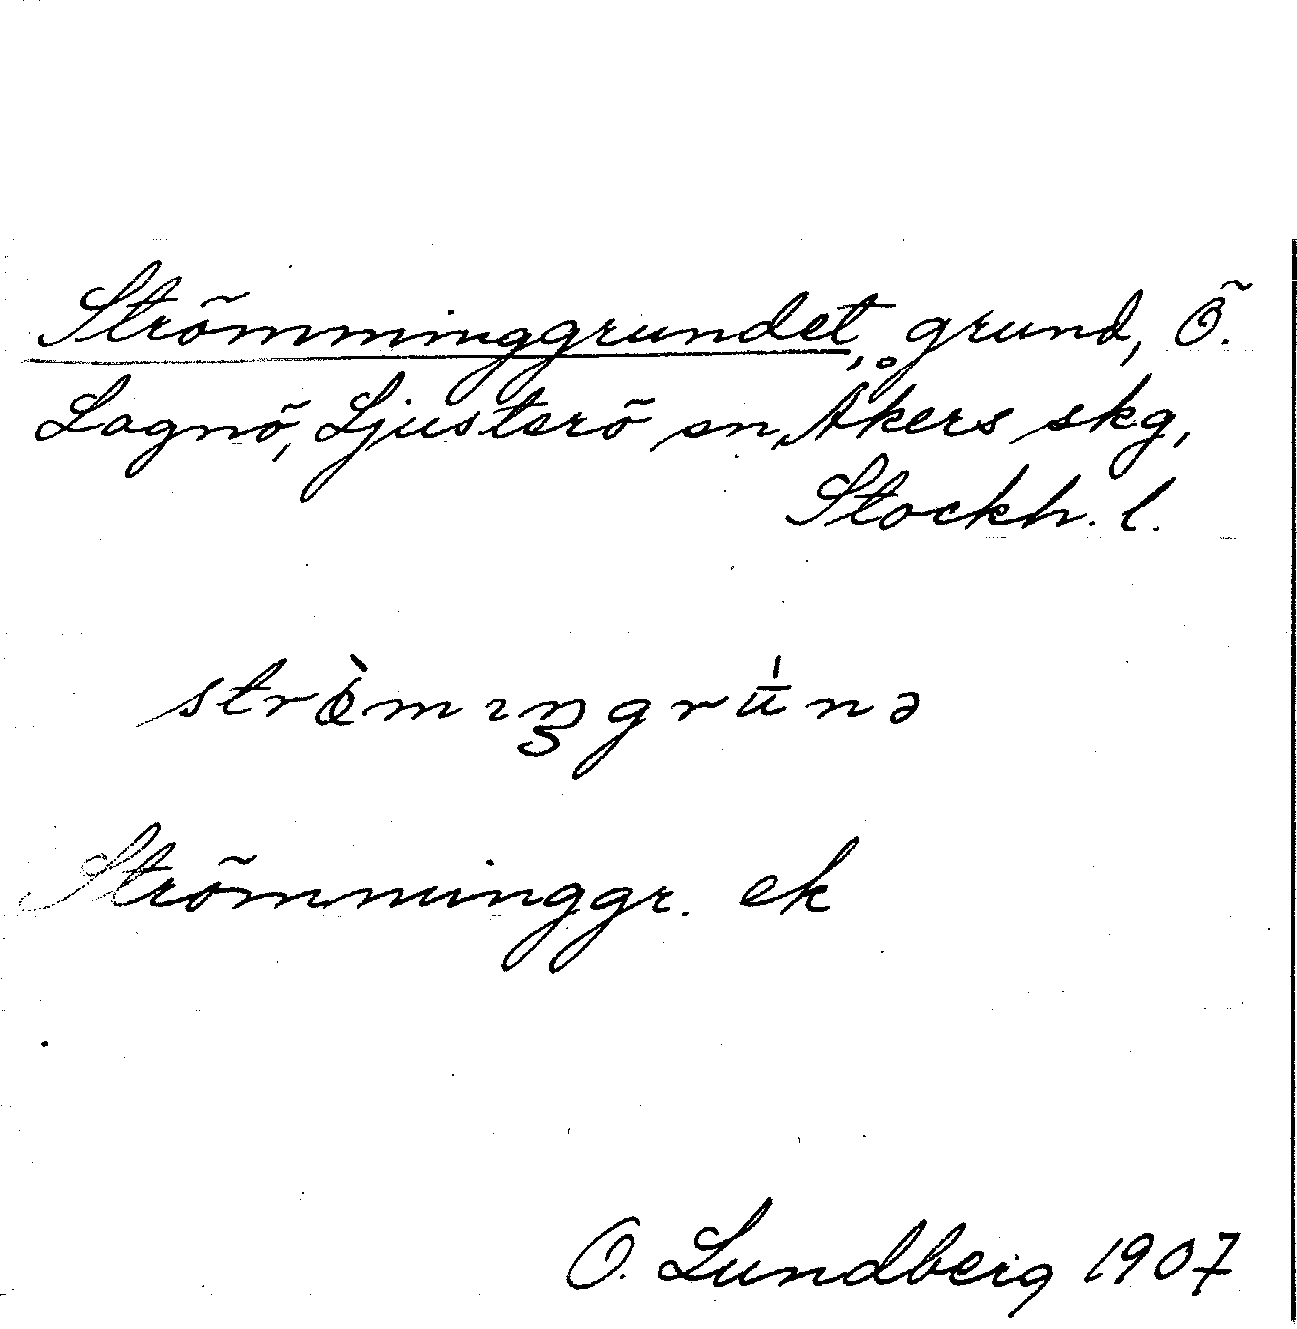 Strömminggrundet, grund, Ö.
Lagnö, Ljusterö sn, Åkers skg,
Stockh. l.
Strömminggr. ek
O. Lundberg 1907